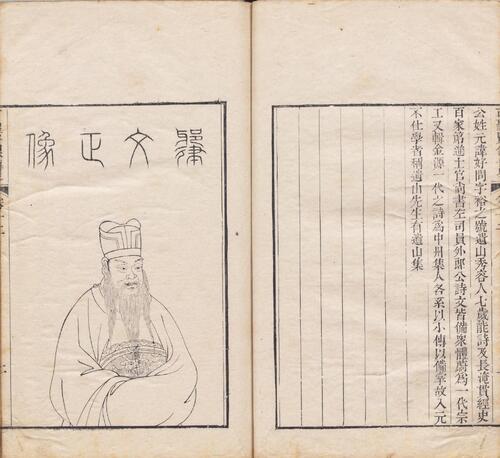 公姓元諱好問字裕之號遺山秀容人七歲能詩及長淹貫經史
百家第進士官尚書左司員外郎公詩文皆備衆體蔚為一代宗
工又輯金源一代之詩為中州集人各系以小傳以備掌故入元
不仕學者稱遺山先生有遺山集
文正像